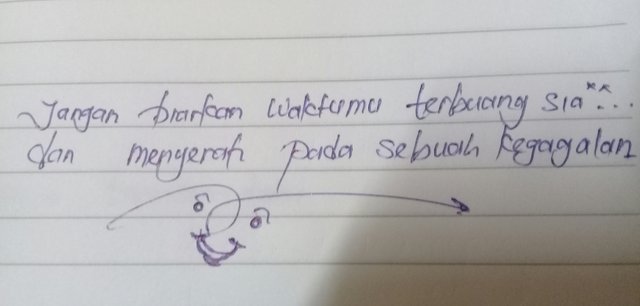 Jangan biarkan waktumu terbuang sia"...
dan menyerah pada sebuah kegagalan